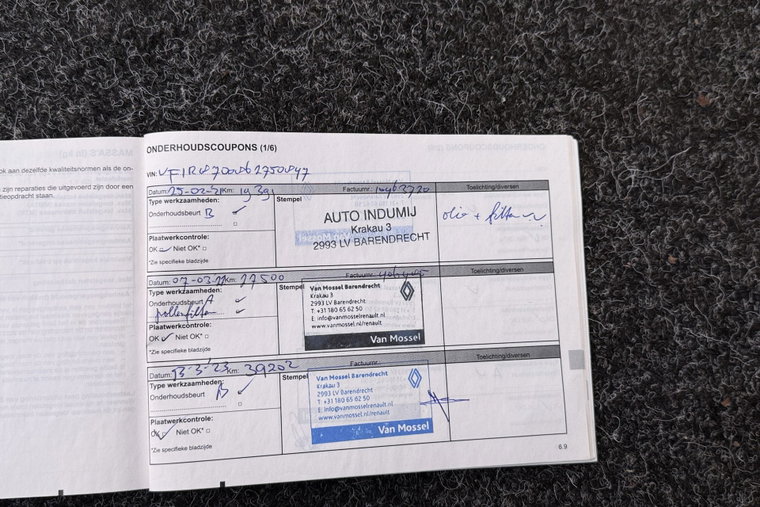 ok aan dezelfde kwaliteitsnormen als de on-
zijn reparaties die uitgevoerd zijn door een
tieopdracht staan.
ONDERHOUDSCOUPONS (1/6)
VIN:
Datum: 25-02-21 Km: 19391 Factuurnr.:
Toelichting/diversen
Type werkzaamheden:
Onderhoudsbeurt B
Stempel
AUTO INDUMIJ
Krakau 3
2993 LV BARENDRECHT
olie + filter
Plaatwerkcontrole:
OK Niet OK*
*Zie specifieke bladzijde
Datum: 07-03-22 Km: 27500 Factuurnr.:
Toelichting/diversen
Type werkzaamheden:
Onderhoudsbeurt A
pollenfilter
Stempel
Van Mossel Barendrecht
Krakau 3
2993 LV Barendrecht
T: +31 180 65 62 50
E: info@vanmosselrenault.nl
www.vanmossel.nl/renault
Van Mossel
Plaatwerkcontrole:
OK Niet OK*
*Zie specifieke bladzijde
Datum: 13-3-23 Km: 39202 Factuurnr.
Toelichting/diversen
Type werkzaamheden:
Onderhoudsbeurt B
Stempel
Van Mossel Barendrecht
Krakau 3
2993 LV Barendrecht
T: +31 180 65 62 50
E: info@vanmosselrenault.nl
www.vanmossel.nl/renault
Van Mossel
Plaatwerkcontrole:
OK Niet OK*
*Zie specifieke bladzijde
6.9